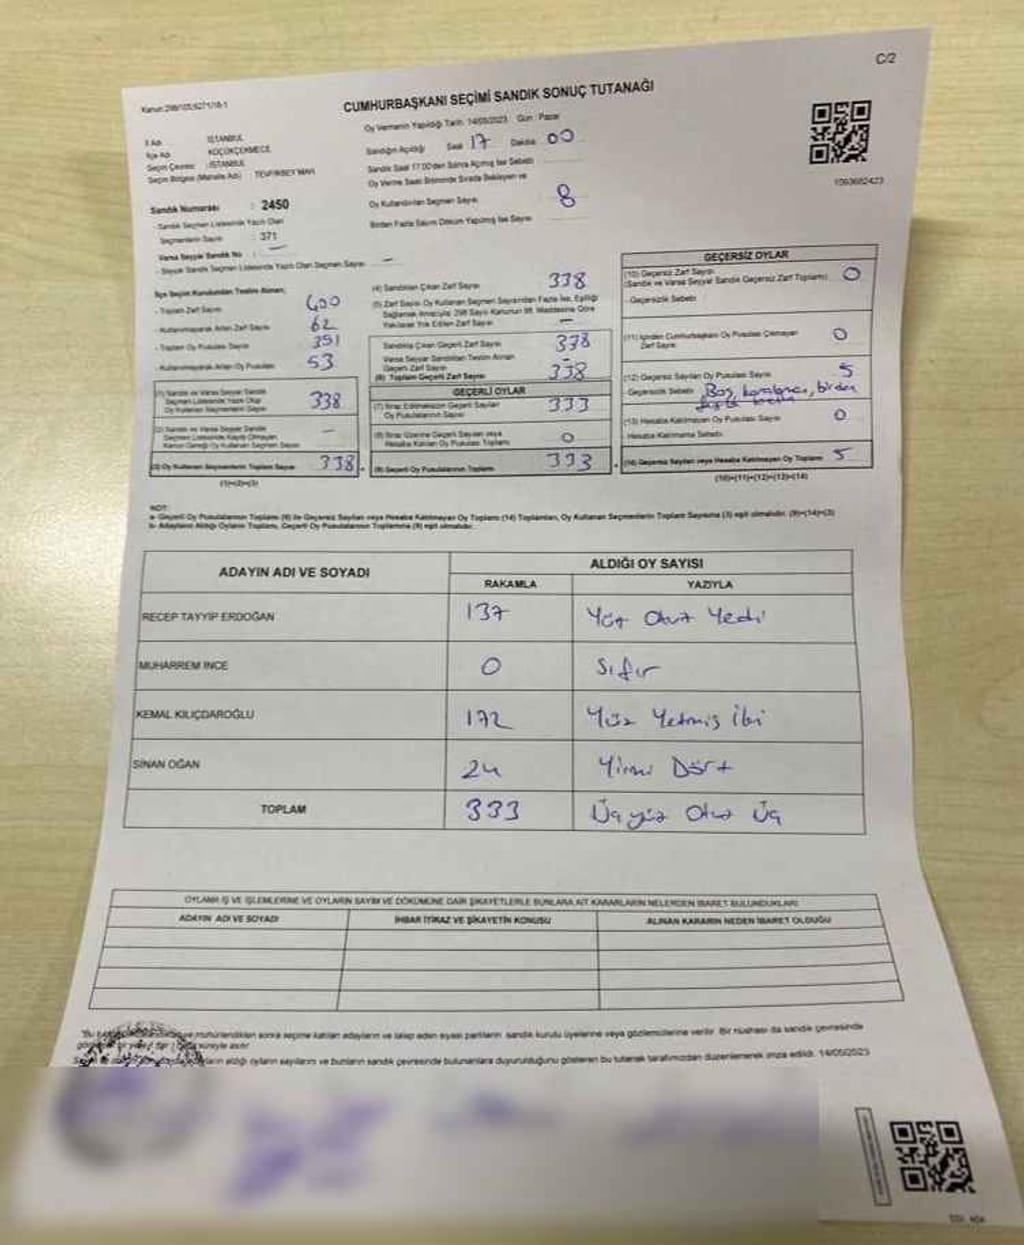 C/2
Kanun:298/105;6271/18-1
CUMHURBAŞKANI SEÇİMİ SANDIK SONUÇ TUTANAĞI
İl Adı : İSTANBUL
İlçe Adı : KÜÇÜKÇEKMECE
Seçim Çevresi : İSTANBUL
Seçim Bölgesi (Mahalle Adı) : TEVFİKBEY MAH.
Sandık Numarası : 2450
- Sandık Seçmen Listesinde Yazılı Olan
Seçmenlerin Sayısı : 371
Varsa Seyyar Sandık No : —
- Seyyar Sandık Seçmen Listesinde Yazılı Olan Seçmen Sayısı : —
Oy Vermenin Yapıldığı Tarih: 14/05/2023 Gün : Pazar
Sandığın Açıldığı Saat 17 Dakika 00
Sandık Saat 17.00'den Sonra Açılmış İse Sebebi
Oy Verme Saati Bitiminde Sırada Bekleyen ve
Oy Kullandırılan Seçmen Sayısı 8
Birden Fazla Sayım Döküm Yapılmış İse Sayısı
1093682423
İlçe Seçim Kurulundan Teslim Alınan;
- Toplam Zarf Sayısı 400
- Kullanılmayarak Artan Zarf Sayısı 62
- Toplam Oy Pusulası Sayısı 391
- Kullanılmayarak Artan Oy Pusulası 53
(1) Sandık ve Varsa Seyyar Sandık
Seçmen Listesinde Yazılı Olup
Oy Kullanan Seçmenlerin Sayısı 338
(2) Sandık ve Varsa Seyyar Sandık
Seçmen Listesinde Kayıtlı Olmayan
Kanun Gereği Oy Kullanan Seçmen Sayısı —
(3) Oy Kullanan Seçmenlerin Toplam Sayısı 338
(1)+(2)=(3)
(4) Sandıktan Çıkan Zarf Sayısı 338
(5) Zarf Sayısı Oy Kullanan Seçmen Sayısından Fazla İse, Eşitliği
Sağlamak Amacıyla; 298 Sayılı Kanunun 98. Maddesine Göre
Yakılarak Yok Edilen Zarf Sayısı —
Sandıkta Çıkan Geçerli Zarf Sayısı 338
Varsa Seyyar Sandıktan Teslim Alınan
Geçerli Zarf Sayısı —
(6) Toplam Geçerli Zarf Sayısı 338
GEÇERLİ OYLAR
(7) İtiraz Edilmeksizin Geçerli Sayılan
Oy Pusulalarının Sayısı 333
(8) İtiraz Üzerine Geçerli Sayılan veya
Hesaba Katılan Oy Pusulası Toplamı 0
(9) Geçerli Oy Pusulalarının Toplamı 333
GEÇERSİZ OYLAR
(10) Geçersiz Zarf Sayısı
(Sandık ve Varsa Seyyar Sandık Geçersiz Zarf Toplamı) 0
- Geçersizlik Sebebi
(11) İçinden Cumhurbaşkanı Oy Pusulası Çıkmayan
Zarf Sayısı 0
(12) Geçersiz Sayılan Oy Pusulası Sayısı 5
- Geçersizlik Sebebi Boş, karalama, birden
fazla
(13) Hesaba Katılmayan Oy Pusulası Sayısı 0
- Hesaba Katılmama Sebebi
(14) Geçersiz Sayılan veya Hesaba Katılmayan Oy Toplamı 5
(10)+(11)+(12)+(13)=(14)
NOT:
a- Geçerli Oy Pusulalarının Toplamı (9) ile Geçersiz Sayılan veya Hesaba Katılmayan Oy Toplamı (14) Toplamları, Oy Kullanan Seçmenlerin Toplam Sayısına (3) eşit olmalıdır. (9)+(14)=(3)
b- Adayların Aldığı Oyların Toplamı, Geçerli Oy Pusulalarının Toplamına (9) eşit olmalıdır.
ADAYIN ADI VE SOYADI
ALDIĞI OY SAYISI
RAKAMLA YAZIYLA
RECEP TAYYİP ERDOĞAN 137 Yüz Otuz Yedi
MUHARREM İNCE 0 Sıfır
KEMAL KILIÇDAROĞLU 172 Yüz Yetmiş İki
SİNAN OĞAN 24 Yirmi Dört
TOPLAM 333 Üç yüz Otuz Üç
OYLAMA İŞ VE İŞLEMLERİNE VE OYLARIN SAYIM VE DÖKÜMÜNE DAİR ŞİKAYETLERLE BUNLARA AİT KARARLARIN NELERDEN İBARET BULUNDUKLARI
ADAYIN ADI VE SOYADI İHBAR İTİRAZ VE ŞİKAYETİN KONUSU ALINAN KARARIN NEDEN İBARET OLDUĞU
ve mühürlendikten sonra seçime katılan adayların ve talep eden siyasi partilerin sandık kurulu üyelerine veya gözlemcilerine verilir. Bir nüshası da sandık çevresinde
süreyle asılır.
aldığı oyların sayılarını ve bunların sandık çevresinde bulunanlara duyurulduğunu gösteren bu tutanak tarafımızdan düzenlenerek imza edildi. 14/05/2023